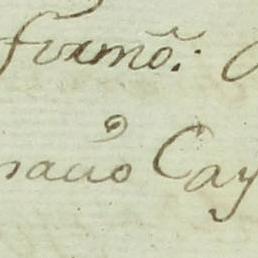 firmõ:
nacio Cay